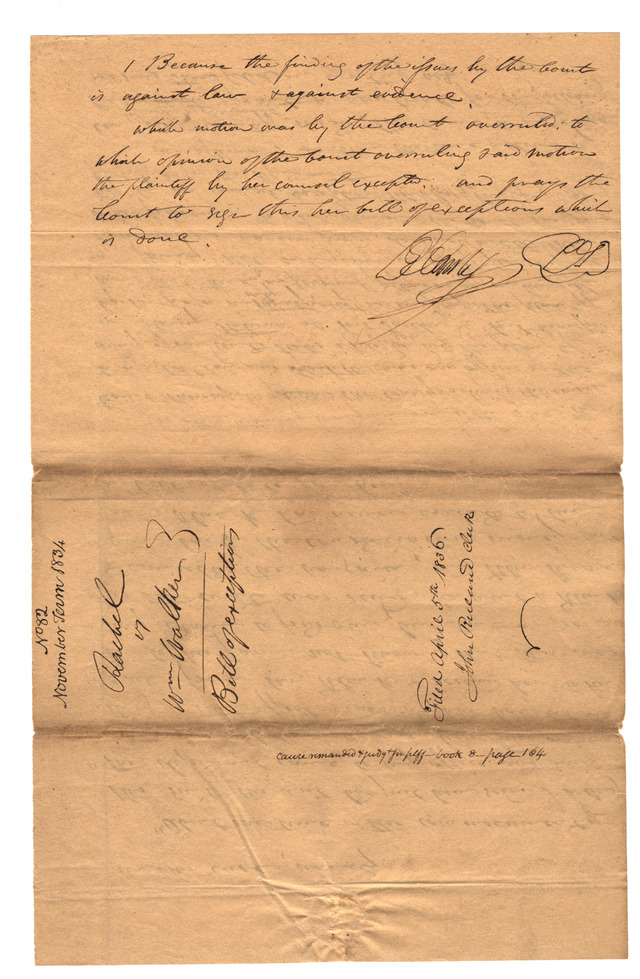 1 Because the finding of the issues by the Court
is against law & against evidence.
which motion was by the Court overruled: to
which opinion of the Court overruling said motion
the plaintiff by her counsel excepts. and prays the
Court to sign this her bill of exceptions which
is done.
No 82
November Term 1834
Rachel
vs
Wm Walker
Bill of exceptions
Filed April 5th 1836.
John Ruland clerk
cause remanded & judgt for plff book 8 page 184